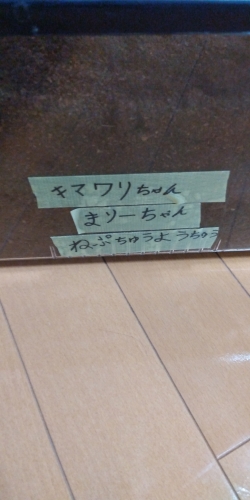 キマワリちゃん
まりーちゃん
ねぷちゅうよ うちゅう